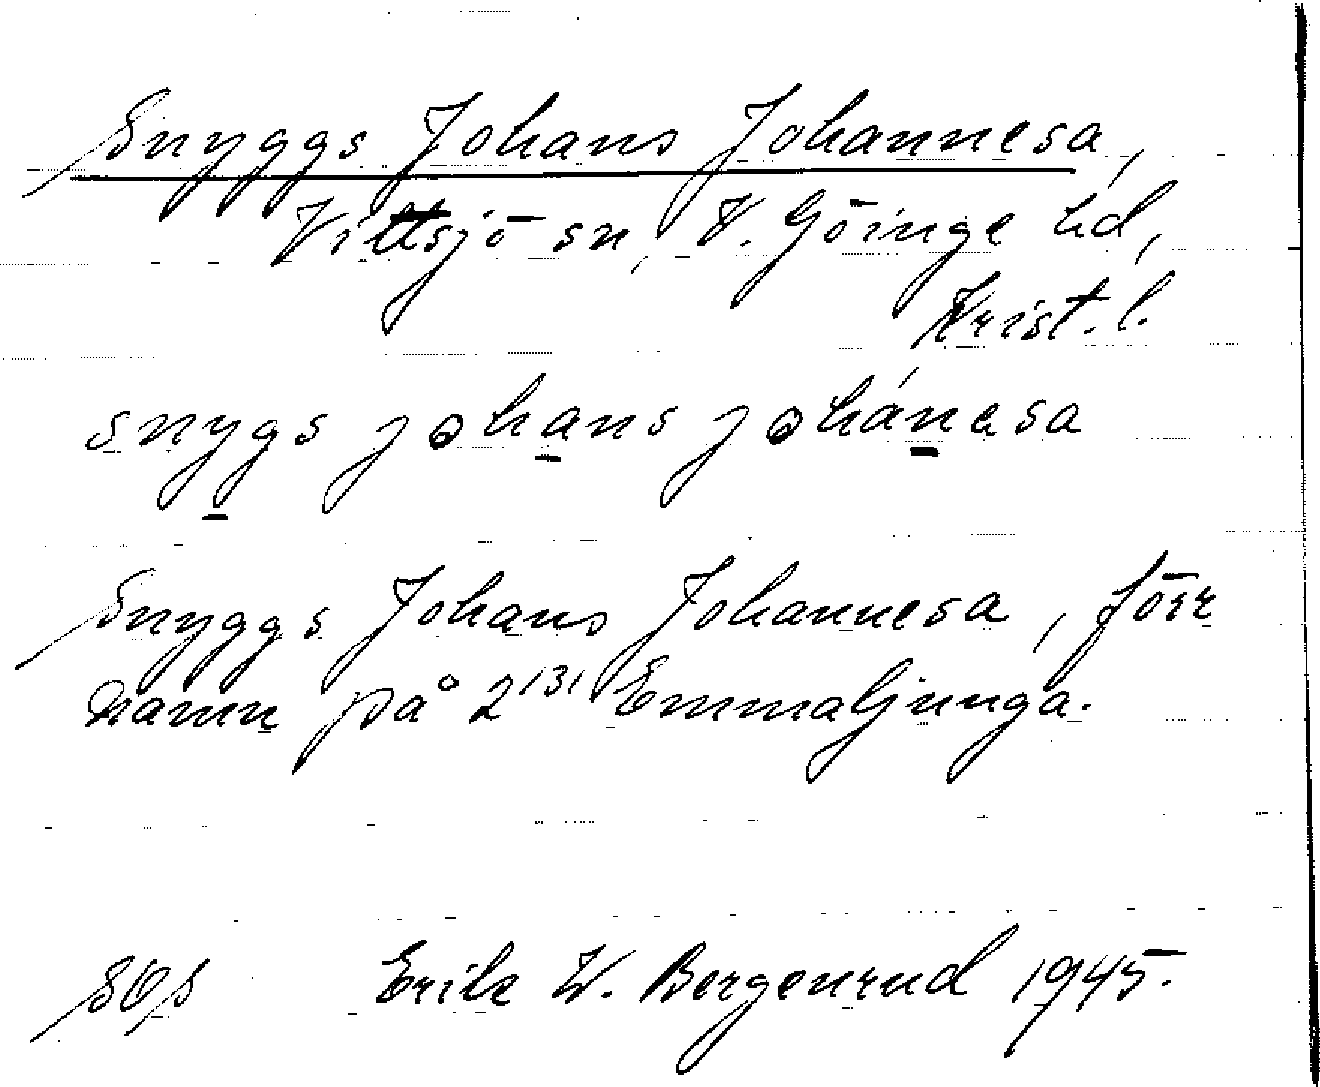 Snyggs Johans Johannesa,
Vittsjö sn, V. Göinge hd,
Krist. l.
snygs johans johánesa
Snyggs Johans Johannesa, förr
namn på 2¹³¹ Emmaljunga.
Erik W. Bergenrud 1945.